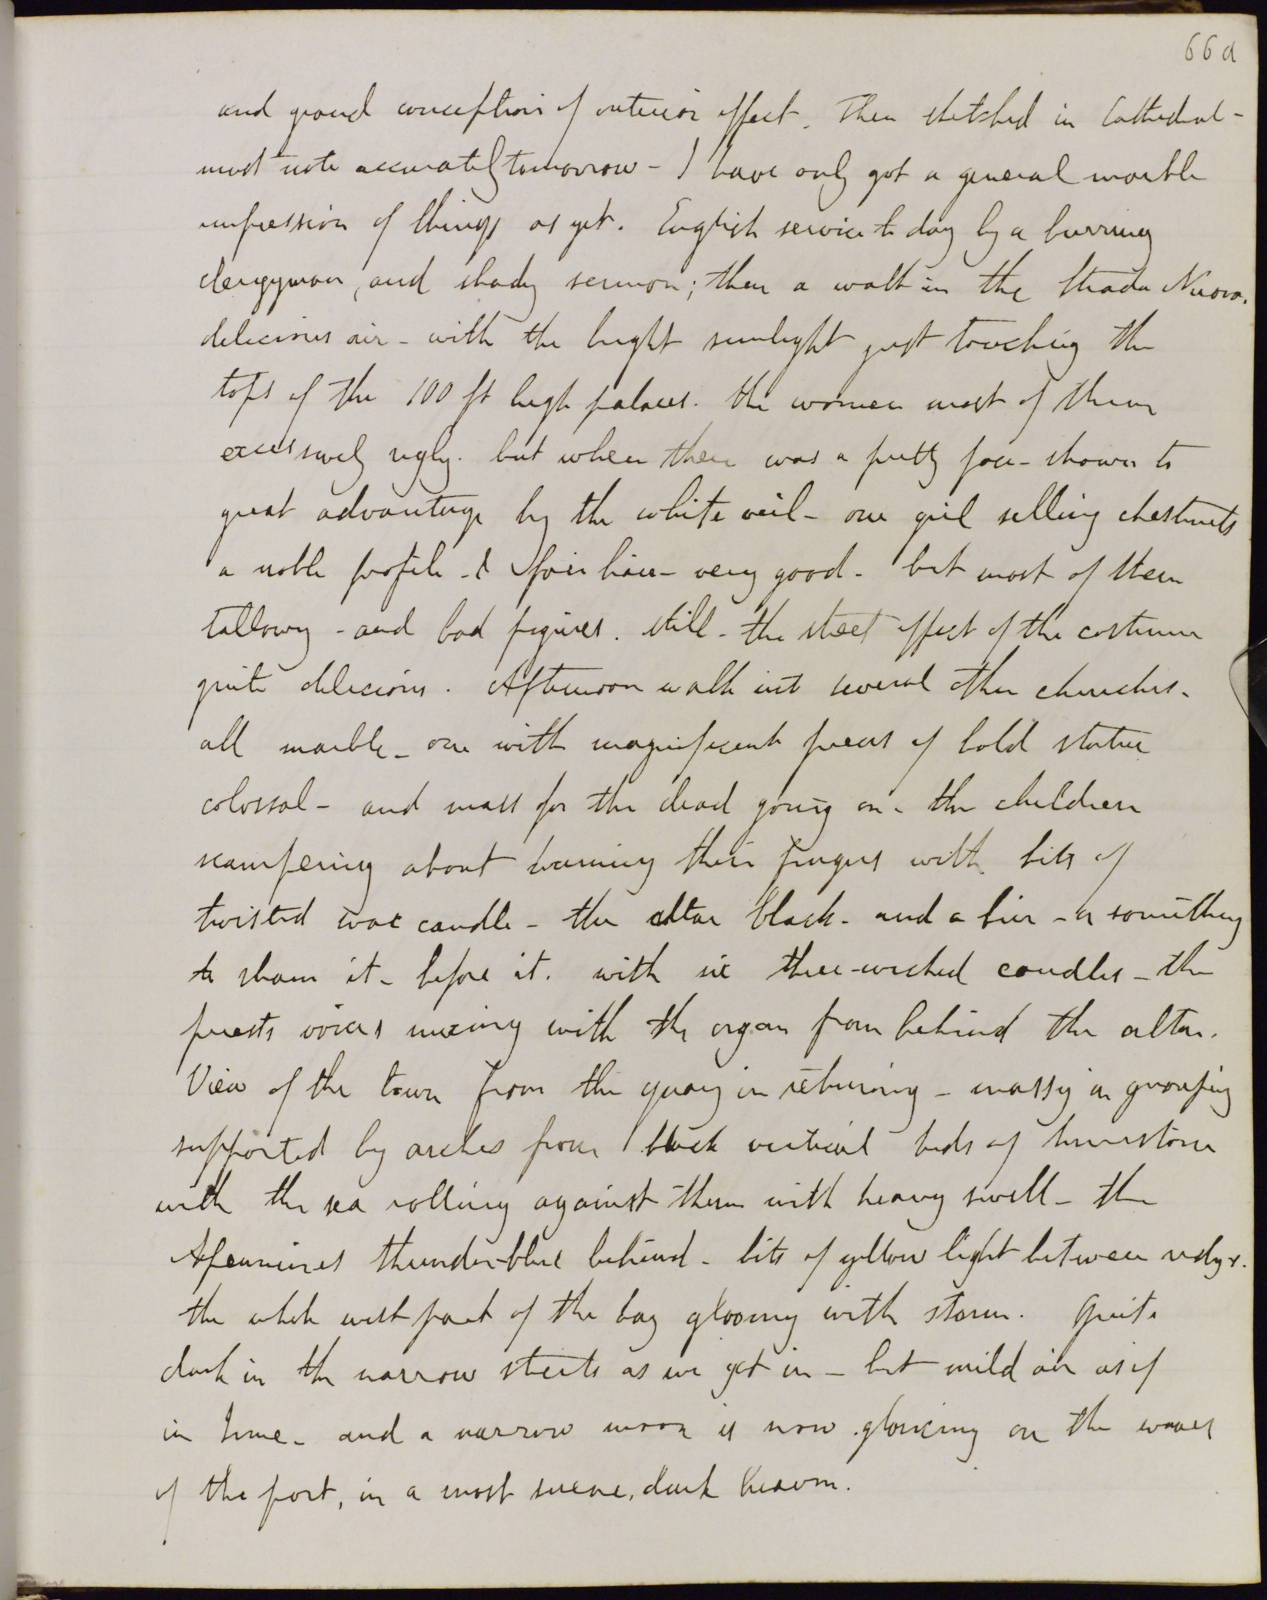 66a
and grand conception of exterior effect. Then sketched in Cathedral -
must note accurately tomorrow - I have only got a general marble
impression of things as yet. English service to day by a burring
clergyman, and shady sermon; then a walk in the Strada Nuova.
delicious air - with the bright sunlight just touching the
tops of the 100 ft high palaces. the women most of them
excessively ugly. but when there was a pretty face - shown to
great advantage by the white veil - one girl selling chestnuts
a noble profile - & fair hair - very good - but most of them
tallowy - and bad figures. still - the street effect of the costume
quite delicious. Afternoon walk into several other churches.
all marble - one with magnificent pieces of bold statue
colossal - and mass for the dead going on - the children
scampering about burning their fingers with bits of
twisted wax candle - the altar black - and a bier - or something
to sham it - before it. with six three-wicked candles - the
priests voices mixing with the organ from behind the altar.
View of the town from the quay in returning - massy in grouping
supported by arches from black vertical beds of limestone
with the sea rolling against them with heavy swell - the
Apennines thunder-blue behind - bits of yellow light between ridges.
the whole west part of the bay gloomy with storm. Quite
dark in the narrow streets as we got in - but mild air as if
in June - and a narrow moon is now glancing on the waves
of the port, in a most serene, dark heaven.